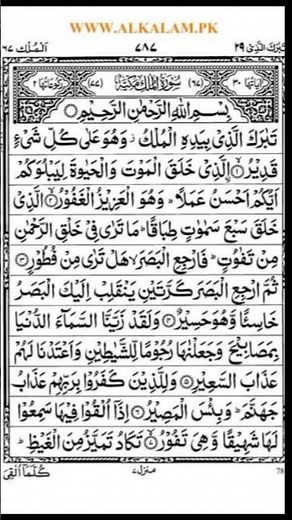 WWW.ALKALAM.PK
تَبٰرَكَ الَّذِیْ ۲۹ ۷۸۷ اَلْمُلْك ۶۷
اٰیَاتُهَا ۳۰ (۶۷) سُوْرَةُ الْمُلْكِ مَكِّیَّةٌ (۷۷) رُكُوْعَاتُهَا ۲
بِسْمِ اللّٰهِ الرَّحْمٰنِ الرَّحِیْمِ
تَبٰرَكَ الَّذِیْ بِیَدِهِ الْمُلْكُ ز وَهُوَ عَلٰی كُلِّ شَیْءٍ
قَدِیْرُ ۙ﴿۱﴾ اۨلَّذِیْ خَلَقَ الْمَوْتَ وَالْحَیٰوةَ لِیَبْلُوَكُمْ
اَیُّكُمْ اَحْسَنُ عَمَلًا ؕ وَهُوَ الْعَزِیْزُ الْغَفُوْرُ ۙ﴿۲﴾ الَّذِیْ
خَلَقَ سَبْعَ سَمٰوٰتٍ طِبَاقًا ؕ مَا تَرٰی فِیْ خَلْقِ الرَّحْمٰنِ
مِنْ تَفٰوُتٍ ؕ فَارْجِعِ الْبَصَرَ ۙ هَلْ تَرٰی مِنْ فُطُوْرٍ ﴿۳﴾
ثُمَّ ارْجِعِ الْبَصَرَ كَرَّتَیْنِ یَنْقَلِبْ اِلَیْكَ الْبَصَرُ
خَاسِئًا وَّهُوَ حَسِیْرٌ ﴿۴﴾ وَلَقَدْ زَیَّنَّا السَّمَآءَ الدُّنْیَا
بِمَصَابِیْحَ وَجَعَلْنٰهَا رُجُوْمًا لِّلشَّیٰطِیْنِ وَاَعْتَدْنَا لَهُمْ
عَذَابَ السَّعِیْرِ ﴿۵﴾ وَلِلَّذِیْنَ كَفَرُوْا بِرَبِّهِمْ عَذَابُ
جَهَنَّمَ ؕ وَبِئْسَ الْمَصِیْرُ ﴿۶﴾ اِذَاۤ اُلْقُوْا فِیْهَا سَمِعُوْا
لَهَا شَهِیْقًا وَّهِیَ تَفُوْرُ ۙ﴿۷﴾ تَكَادُ تَمَیَّزُ مِنَ الْغَیْظِ ؕ
منزل ۷ كُلَّمَاۤ اُلْقِیَ